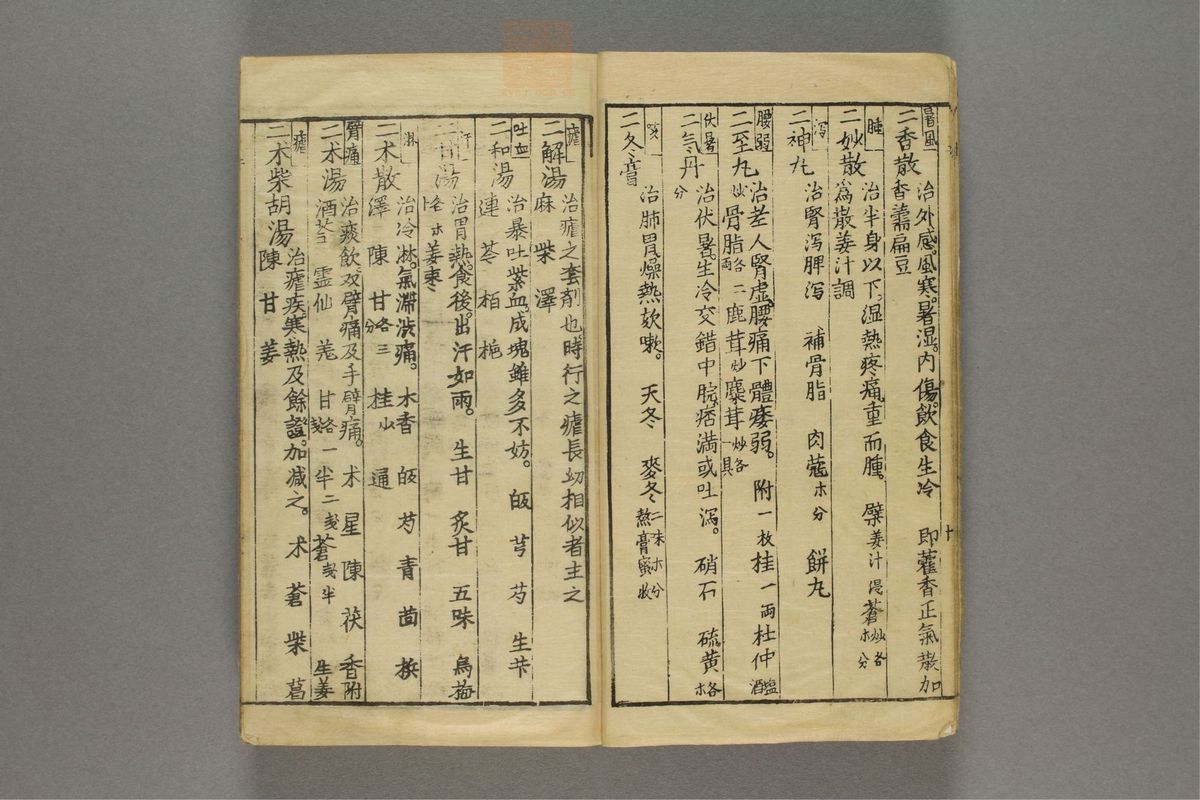 暑風
二香散 治外感。風寒。暑湿。内傷飲食生冷 即藿香正氣散加
香薷扁豆
腫
二妙散 治半身以下。湿熱疼痛重而腫。 檗姜汁浸 蒼炒各
為散姜汁調
瀉
二神丸 治腎瀉脾瀉 補骨脂 肉蔻 餅丸
腰弱
二至丸 治老人腎虚。腰痛下體痿弱。 附一枚桂一両杜仲塩酒
炒骨脂各両二鹿茸炒麋茸炒各一具
伏暑
二气丹 治伏暑。生冷交錯中脘。痞満或吐瀉。 硝石 硫黄各
分
咳
二冬膏 治肺胃燥熱欬嗽。 天冬 麥冬 二味 分 熬膏蜜收
十
瘧
二解湯 治瘧之套剤也時行之瘧長幼相似者主之
麻 柴 澤
吐血
二和湯 治暴吐紫血。成塊雖多不妨。 皈 芎 芍 生苄
連 芩 栢 梔
汗
二甘湯 治胃熱。食後。出汗如雨。 生甘 炙甘 五味 烏梅
姜枣
淋
二朮散 治冷淋。氣滞渋痛。 木香 皈 芍 青 茴 梹
澤 陳 甘各三分 桂少 通
臂痛
二朮湯 治痰飲。双臂痛及手臂痛。 术 星 陳 茯 香附
酒芩 霊仙 羗 甘各一戔半二戔蒼戔半 生姜
瘧
二朮柴胡湯 治瘧疾寒熱及餘證。加减之。 术 蒼 柴 葛
陳 甘 姜